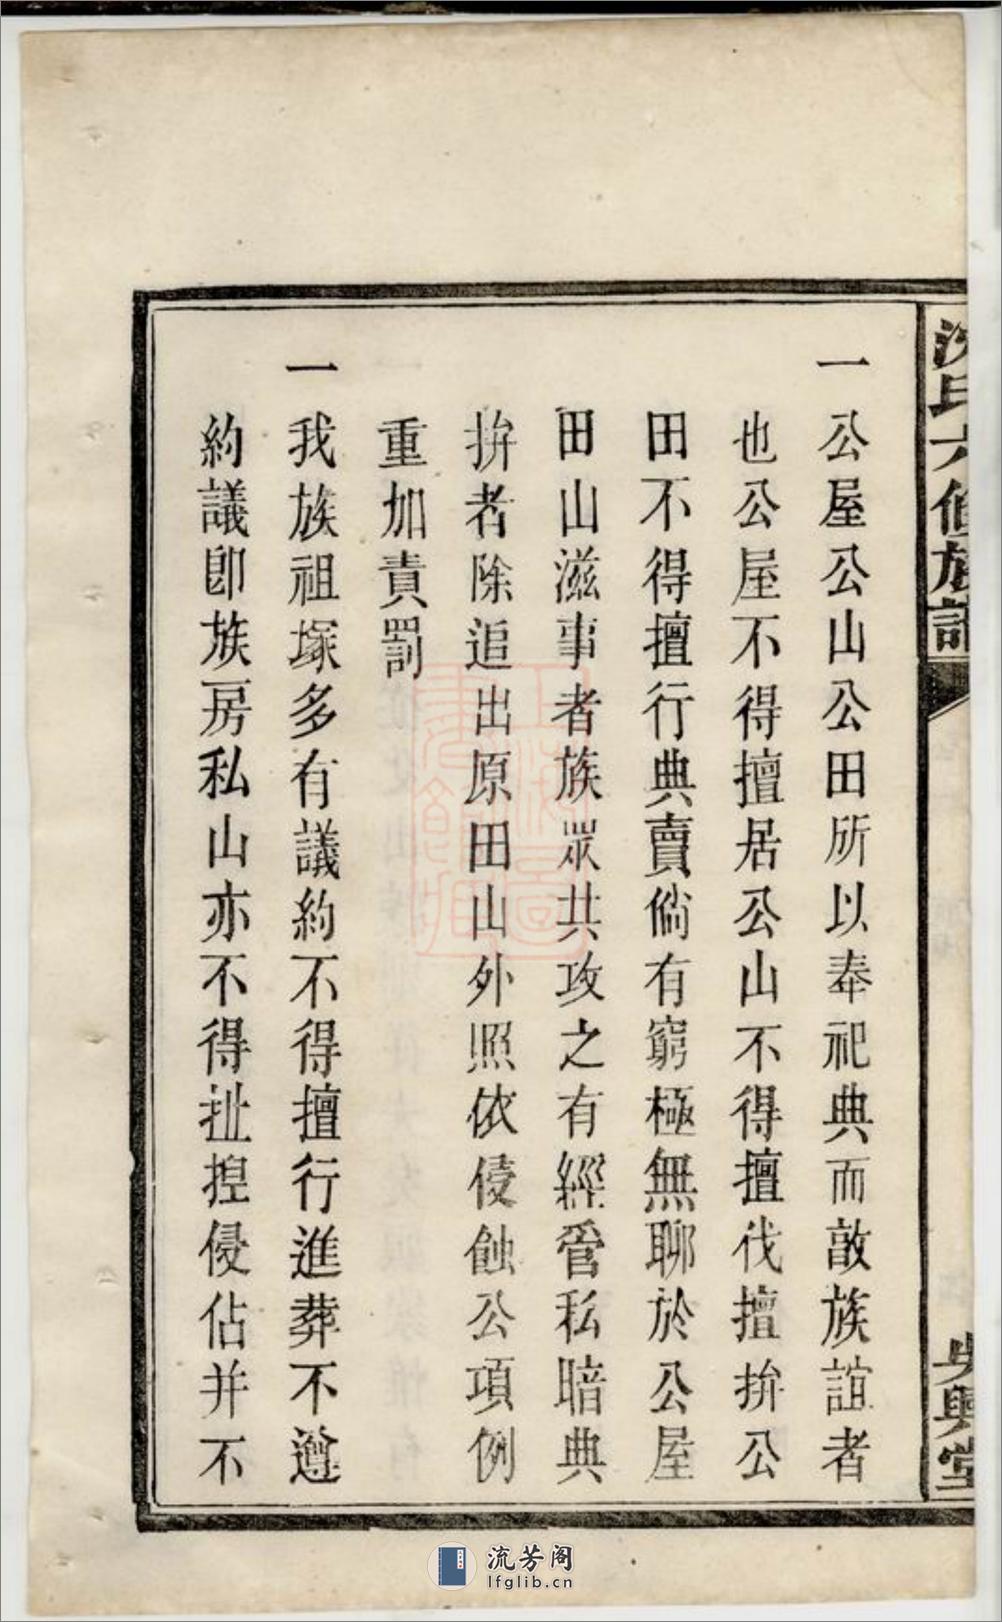 沈氏六修族譜
吳興堂
一公屋公山公田所以奉祀典而敦族誼者
也公屋不得擅居公山不得擅伐擅拚公
田不得擅行典賣倘有窮極無聊於公屋
田山滋事者族眾共攻之有經管私暗典
拚者除追出原田山外照依侵蝕公項例
重加責罰
一我族祖塚多有議約不得擅行進葬不遵
約議卽族房私山亦不得扯揑侵佔并不
流芳阁
lfglib.cn